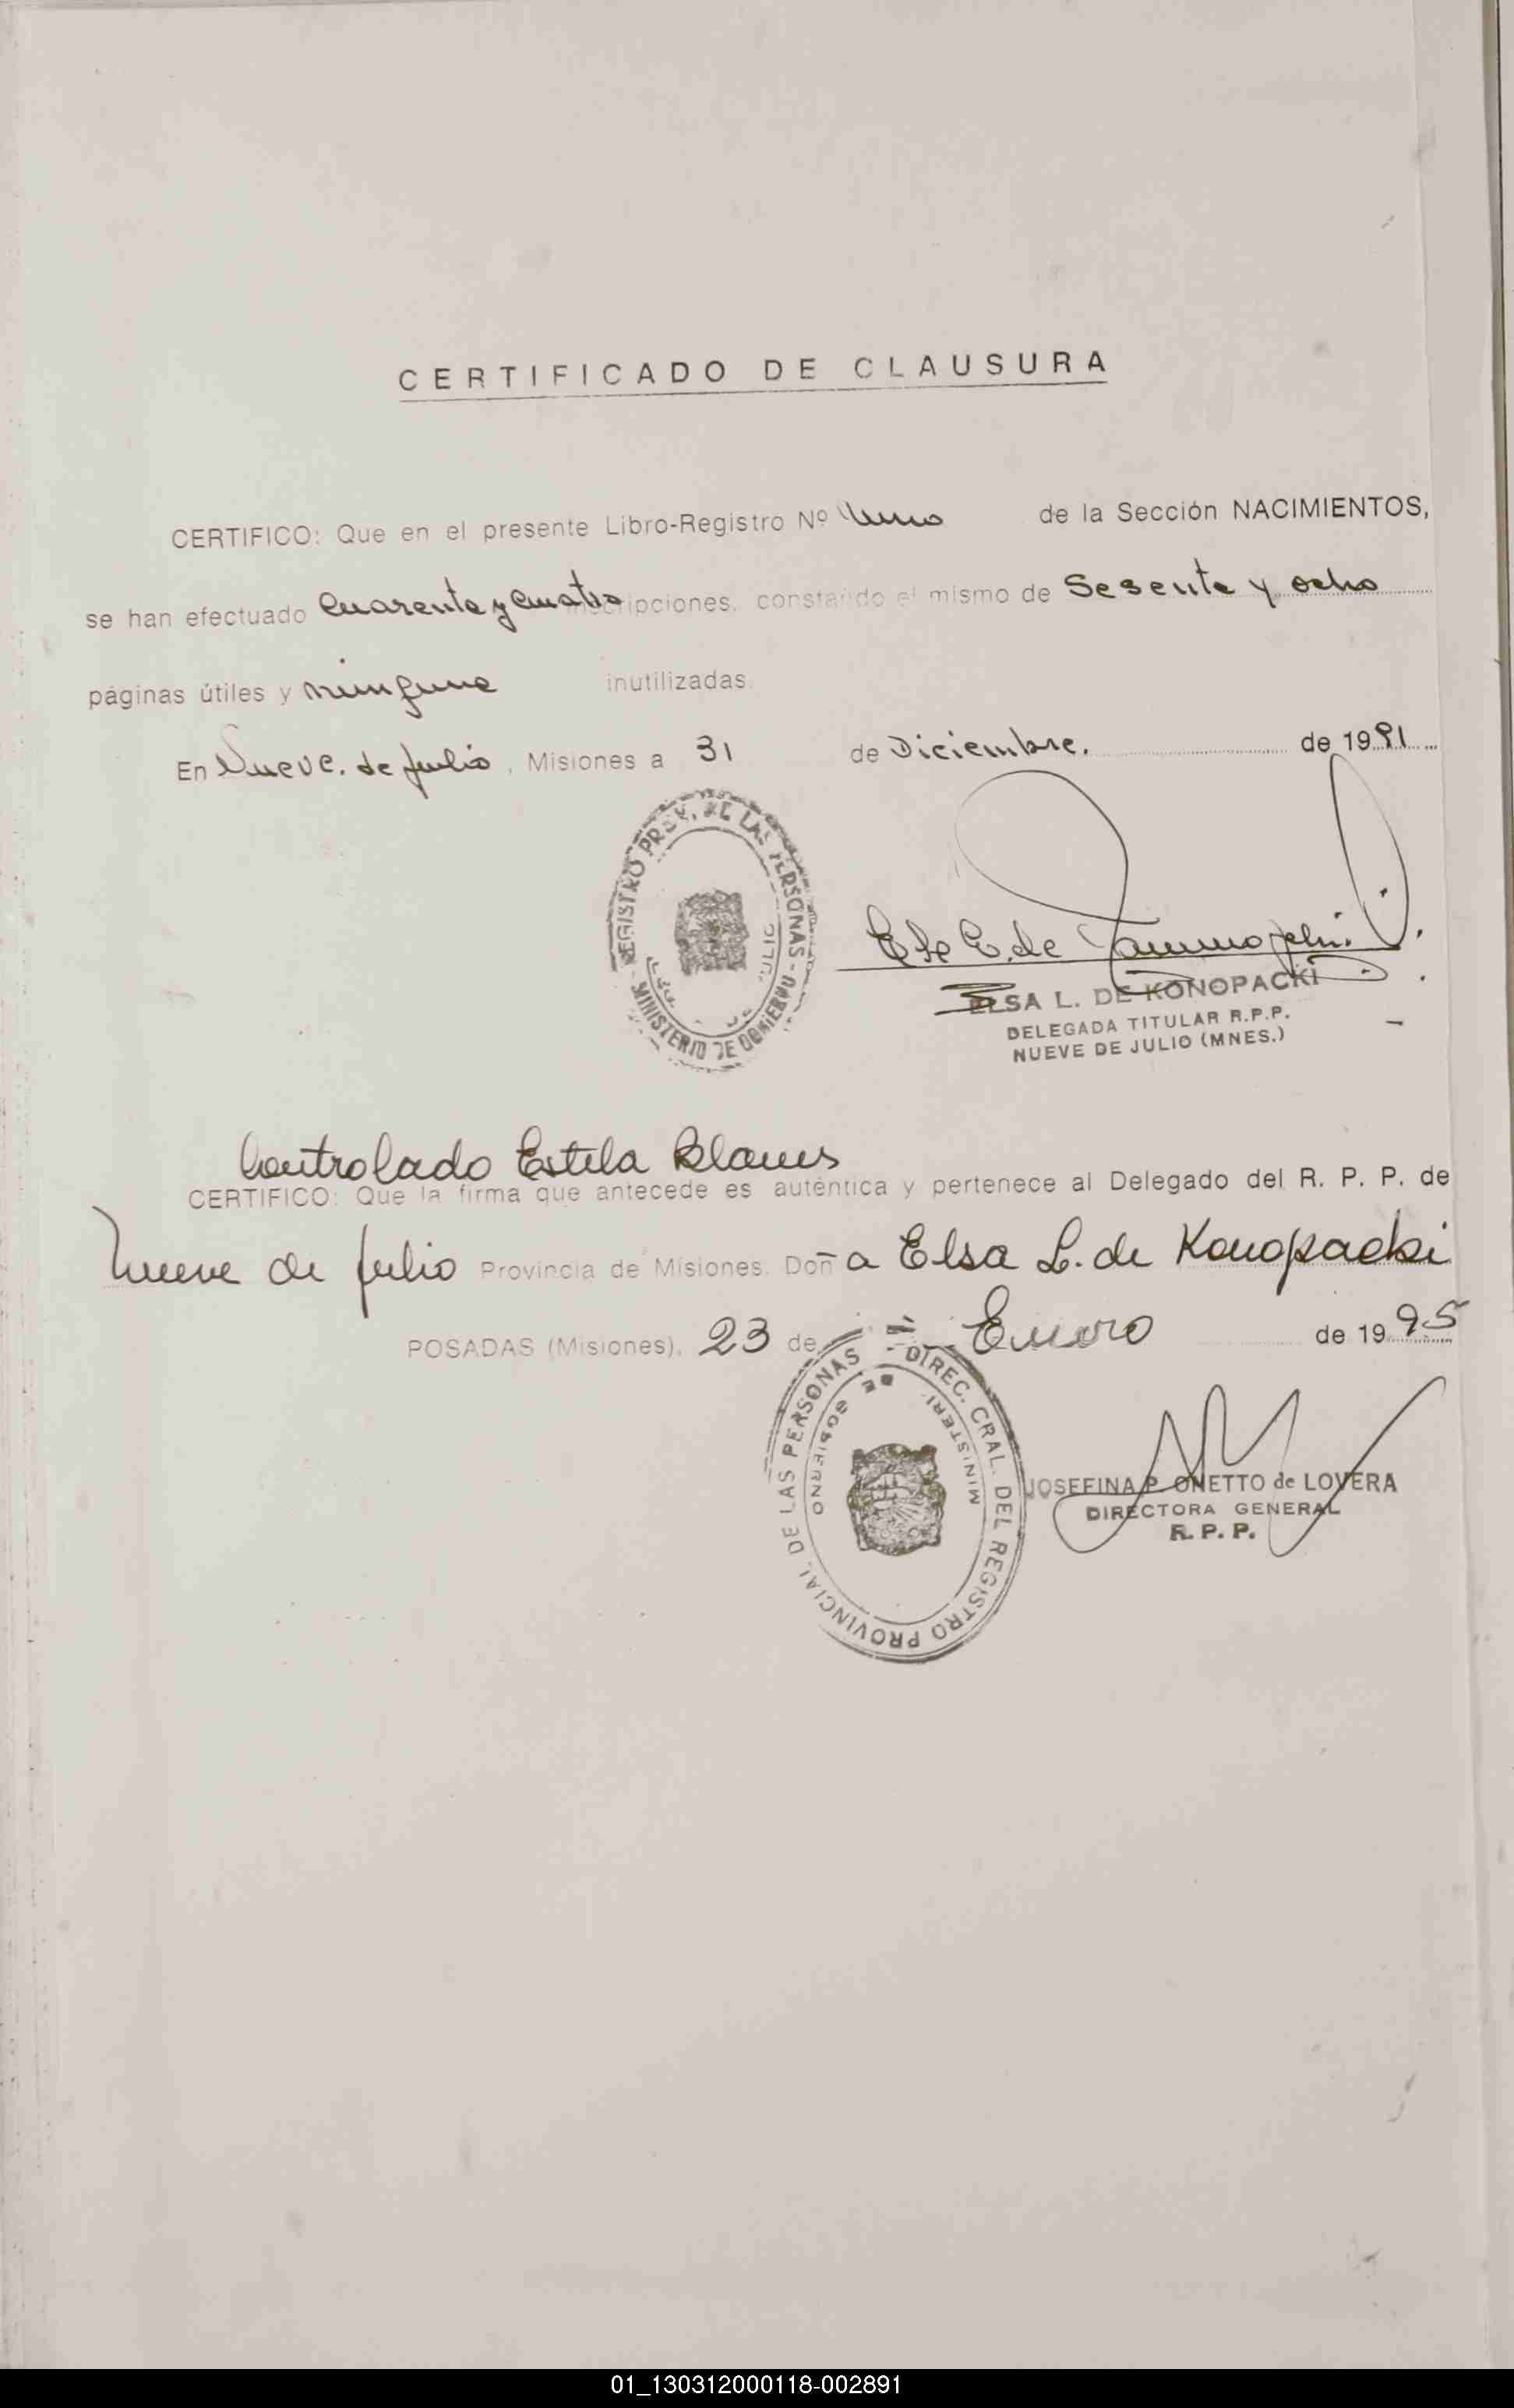 CERTIFICADO DE CLAUSURA
CERTIFICO: Que en el presente Libro-Registro Nº Uno de la Sección NACIMIENTOS,
se han efectuado Cuarenta y Cuatro inscripciones, constando el mismo de Sesenta y ocho
páginas útiles y ninguna inutilizadas.
En Nueve de Julio, Misiones a 31 de Diciembre. de 1991
REGISTRO PROV. DE LAS PERSONAS - MINISTERIO DE GOBIERNO -
ELSA L. DE KONOPACKI
DELEGADA TITULAR R.P.P.
NUEVE DE JULIO (MNES.)
Controlado Estela
CERTIFICO: Que la firma que antecede es auténtica y pertenece al Delegado del R. P. P. de
Nueve de Julio Provincia de Misiones. Doña Elsa L. de Konopacki
POSADAS (Misiones), 23 de Enero de 1995
DIREC. GRAL. DEL REGISTRO PROVINCIAL DE LAS PERSONAS
MINISTERI. DE GOBIERNO
JOSEFINA P. ONETTO de LOVERA
DIRECTORA GENERAL
R. P. P.
01_130312000118-002891